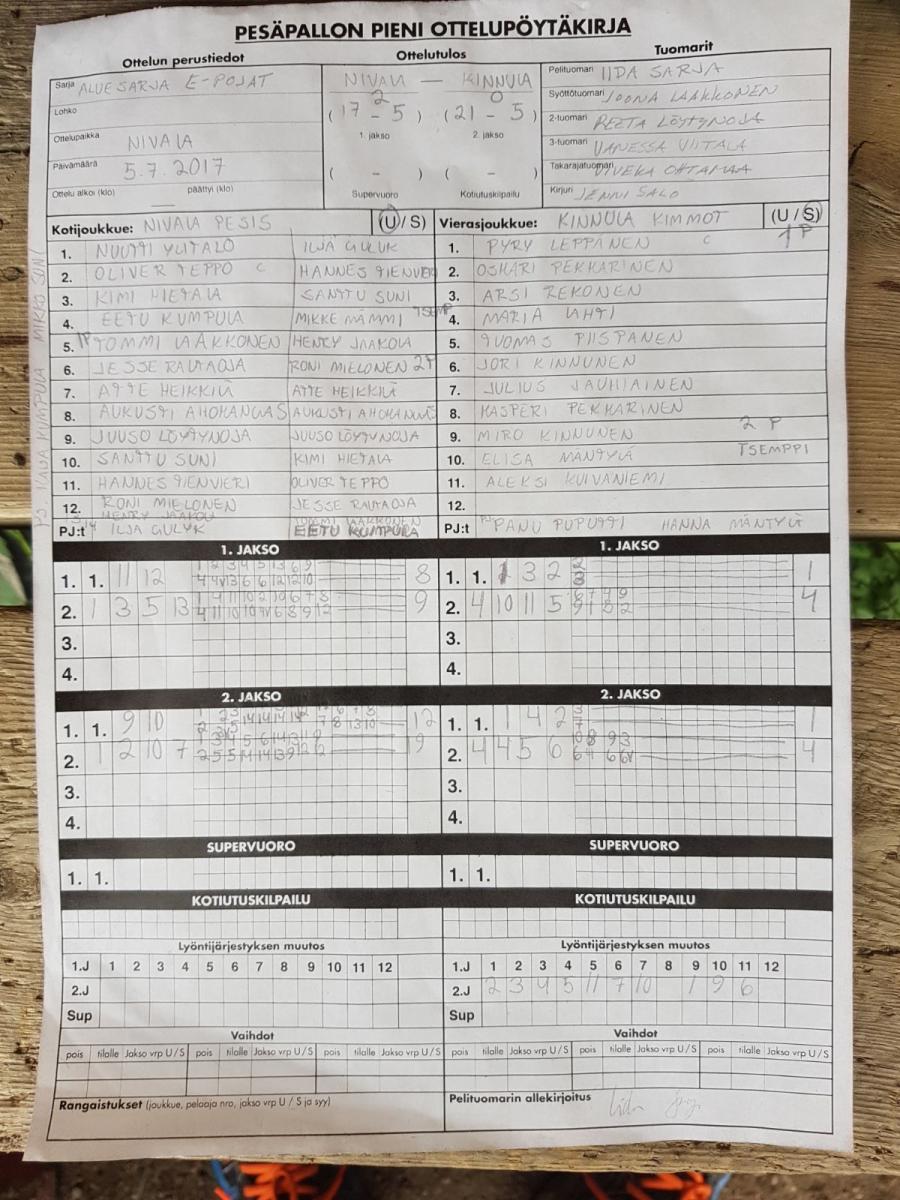 PESÄPALLON PIENI OTTELUPÖYTÄKIRJA
Ottelun perustiedot
Ottelutulos
Tuomarit
Sarja ALUESARJA E-POJAT
Lohko
Ottelupaikka NIVALA
Päivämäärä 5.7.2017
Ottelu alkoi (klo) päättyi (klo)
NIVALA — KINNULA
2 0
(17 - 5) (21 - 5)
1. jakso 2. jakso
( - ) ( - )
Supervuoro Kotiutuskilpailu
Pelituomari IIDA SARJA
Syöttötuomari JOONA LAAKKONEN
2-tuomari REETA LÖYTYNOJA
3-tuomari VANESSA VIITALA
Takarajatuomari VIVEKA OHTAMAA
Kirjuri JENNI SALO
Kotijoukkue: NIVALA PESIS (U/S)
1. NUUTTI YLITALO ILJA GULUK
2. OLIVER TEPPO C HANNES TIENVIERI
3. KIMI HIETALA SANTTU SUNI
4. EETU KUMPULA MIKKE MÄMMI TSEMP
5. 1P TOMMI LAAKKONEN HENRY JAAKOLA
6. JESSE RAUTAOJA RONI MIELONEN 2P
7. ATTE HEIKKILÄ ATTE HEIKKILÄ
8. AUKUSTI AHOKANGAS AUKUSTI AHOKANGAS
9. JUUSO LÖYTYNOJA JUUSO LÖYTYNOJA
10. SANTTU SUNI KIMI HIETALA
11. HANNES TIENVIERI OLIVER TEPPO
12. RONI MIELONEN JESSE RAUTAOJA
HENRY JAAKOLA TOMMI LAAKKONEN
PJ:t ILJA GULYK EETU KUMPULA
PJ. KAIJA KUMPULA MIKKO SUNI
Vierasjoukkue: KINNULA KIMMOT (U/S)
1P
1. PYRY LEPPÄNEN C
2. OSKARI PEKKARINEN
3. ARSI REKONEN
4. MARIA LAHTI
5. TUOMAS PIISPANEN
6. JORI KINNUNEN
7. JULIUS JAUHIAINEN
8. KASPERI PEKKARINEN
9. MIRO KINNUNEN 2 P
10. ELISA MÄNTYLÄ TSEMPPI
11. ALEKSI KUIVANIEMI
12.
PJ:t PANU PUPUTTI HANNA MÄNTYLÄ
1. JAKSO
1. 1. 11 12 8
2. 1 3 5 13 9
3.
4.
1. JAKSO
1. 1. 1 3 2 2 1
3
2. 4 10 11 5 4
3.
4.
2. JAKSO
1. 1. 9 10 12
2. 1 2 10 7 9
3.
4.
2. JAKSO
1. 1. 1 4 2 3 1
7
2. 4 4 5 6 10 8 9 3 4
3.
4.
SUPERVUORO
1. 1.
SUPERVUORO
1. 1.
KOTIUTUSKILPAILU
KOTIUTUSKILPAILU
Lyöntijärjestyksen muutos
1.J 1 2 3 4 5 6 7 8 9 10 11 12
2.J
Sup
Lyöntijärjestyksen muutos
1.J 1 2 3 4 5 6 7 8 9 10 11 12
2.J 2 3 4 5 11 7 10 1 9 6
Sup
Vaihdot
pois tilalle Jakso vrp U/S pois tilalle Jakso vrp U/S pois tilalle Jakso vrp U/S
Vaihdot
pois tilalle Jakso vrp U/S pois tilalle Jakso vrp U/S pois tilalle Jakso vrp U/S
Rangaistukset (joukkue, pelaaja nro, jakso vrp U / S ja syy)
Pelituomarin allekirjoitus